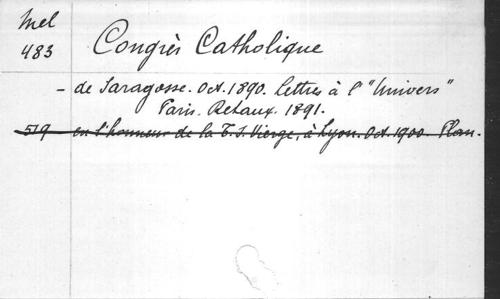 Mel
483
Congrès Catholique
- de Saragosse. Oct. 1890. Lettres à l' "Univers"
Paris. Retaux. 1891.
519 en l'honneur de la T. S. Vierge, à Lyon. Oct. 1900. Plan.